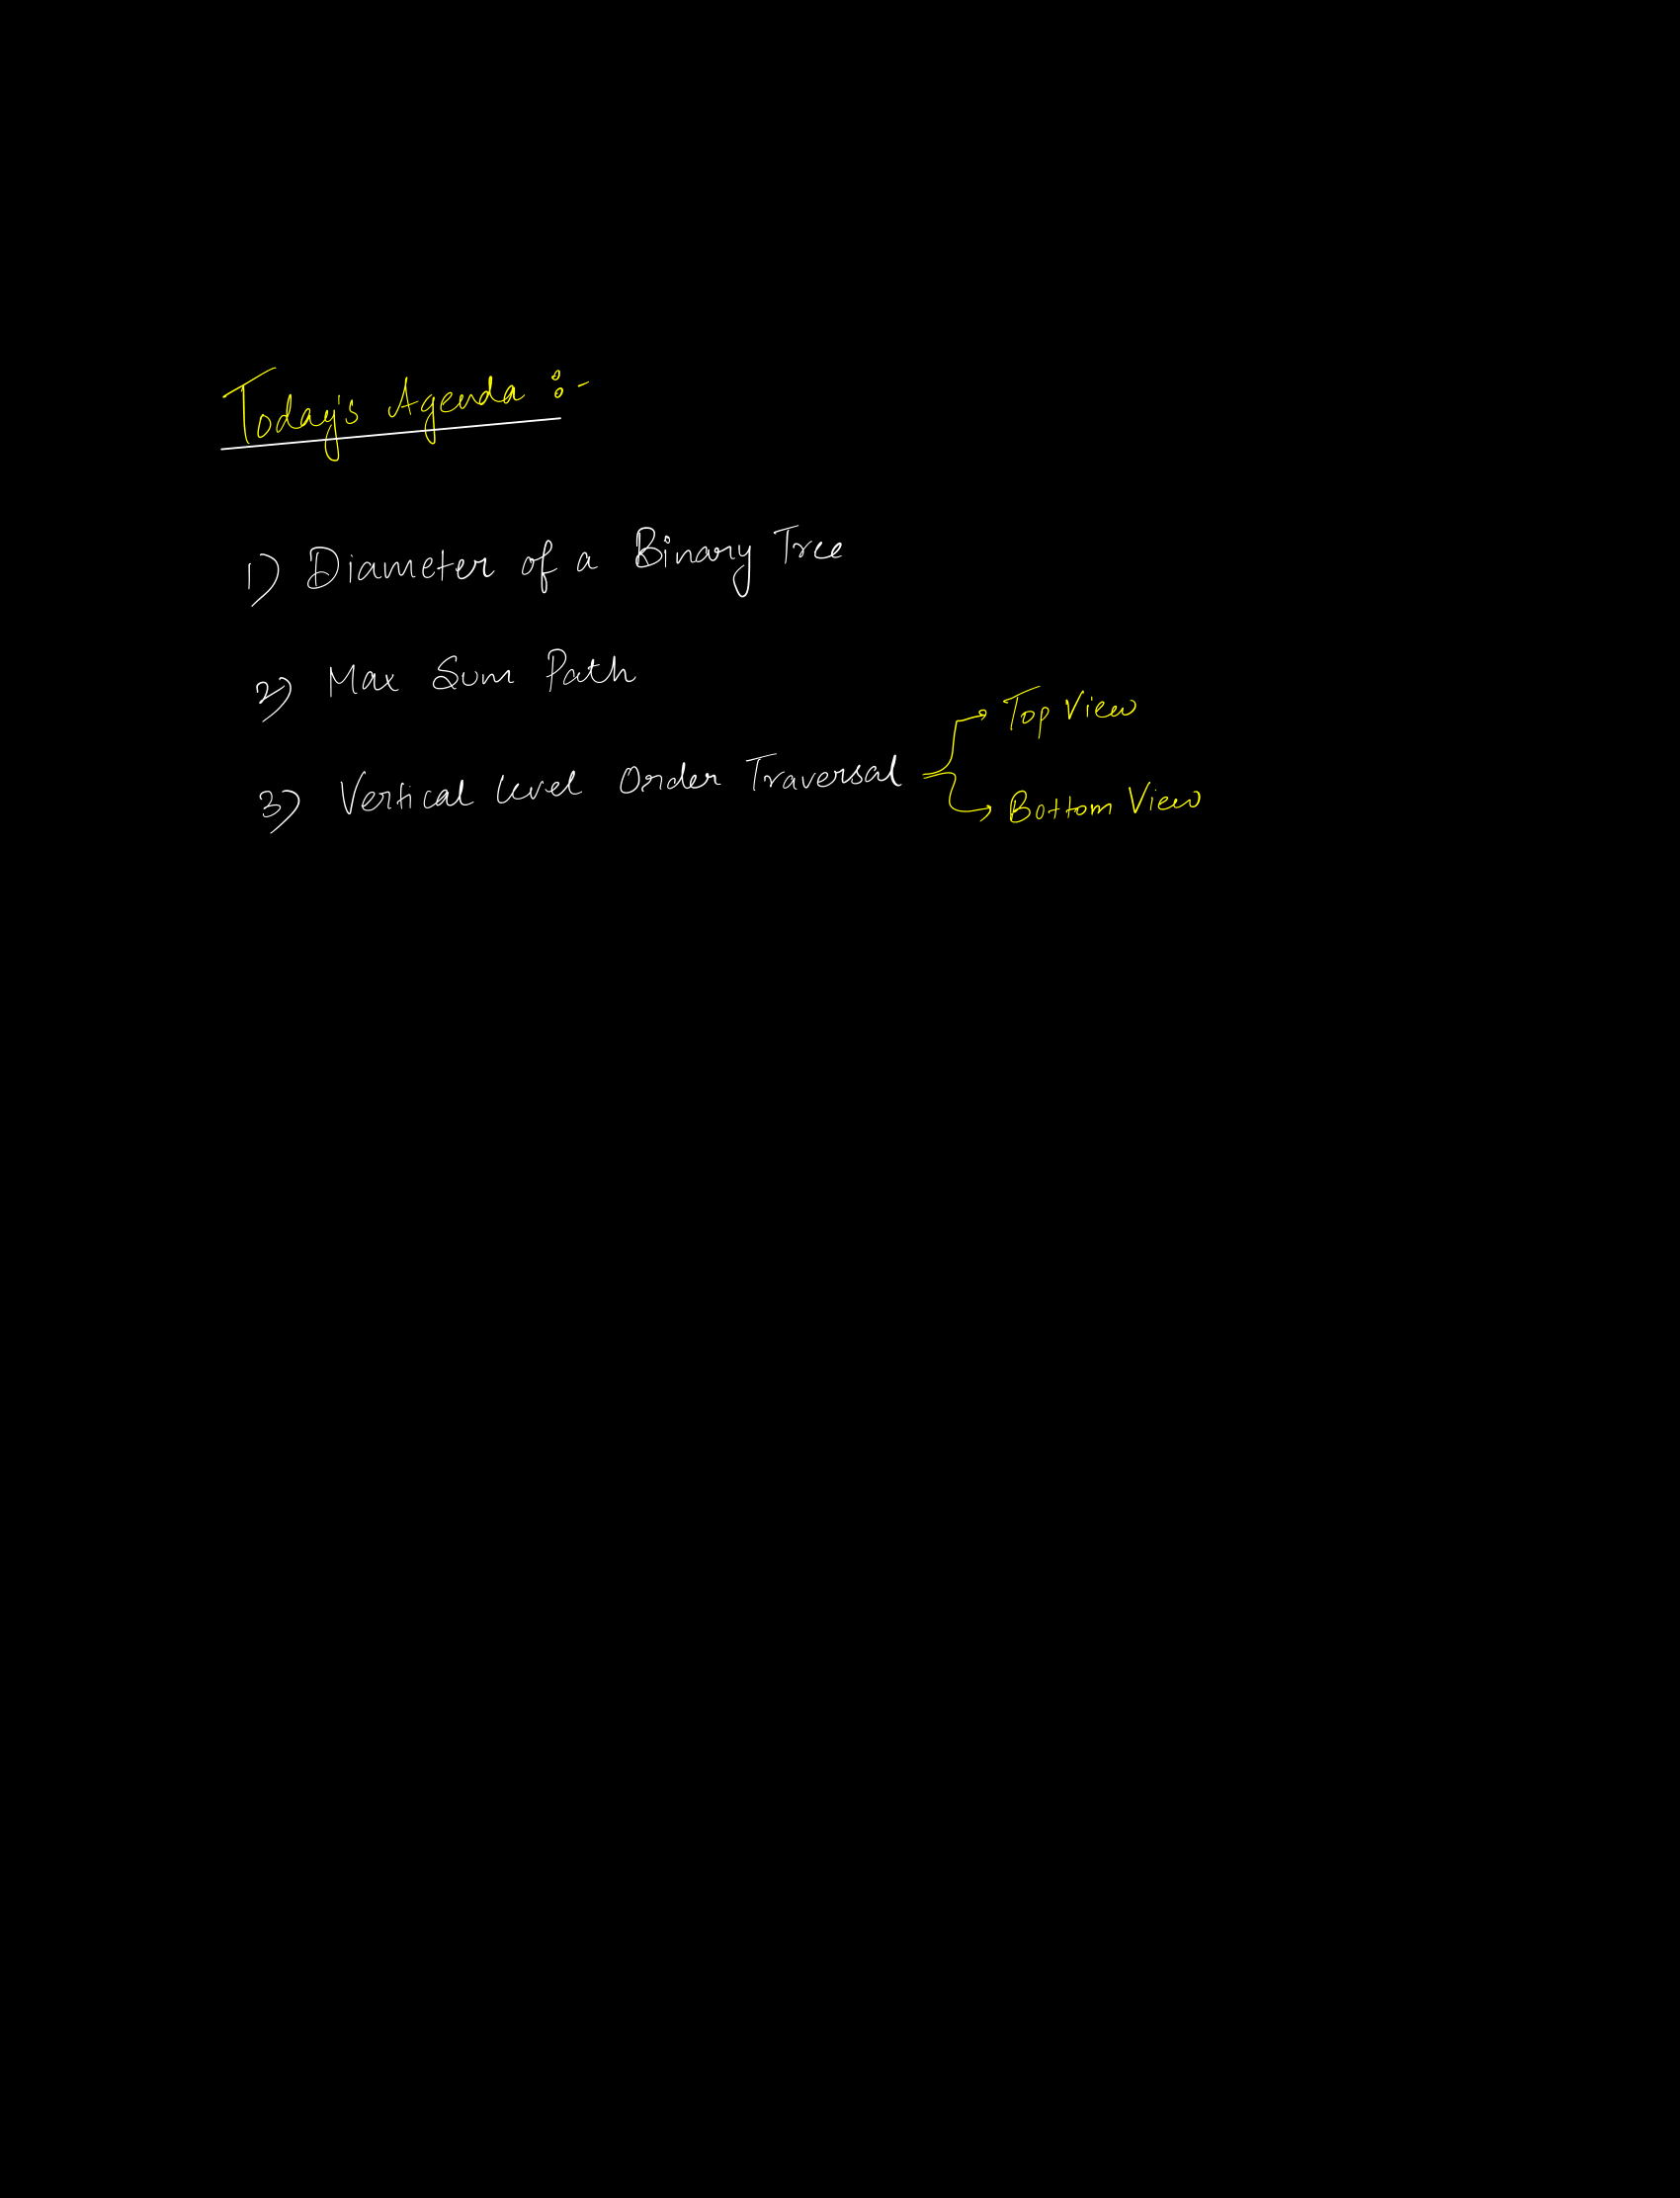 Today's Agenda :-
1) Diameter of a Binary Tree
2) Max Sum Path
3) Vertical level Order Traversal
Top View
Bottom View